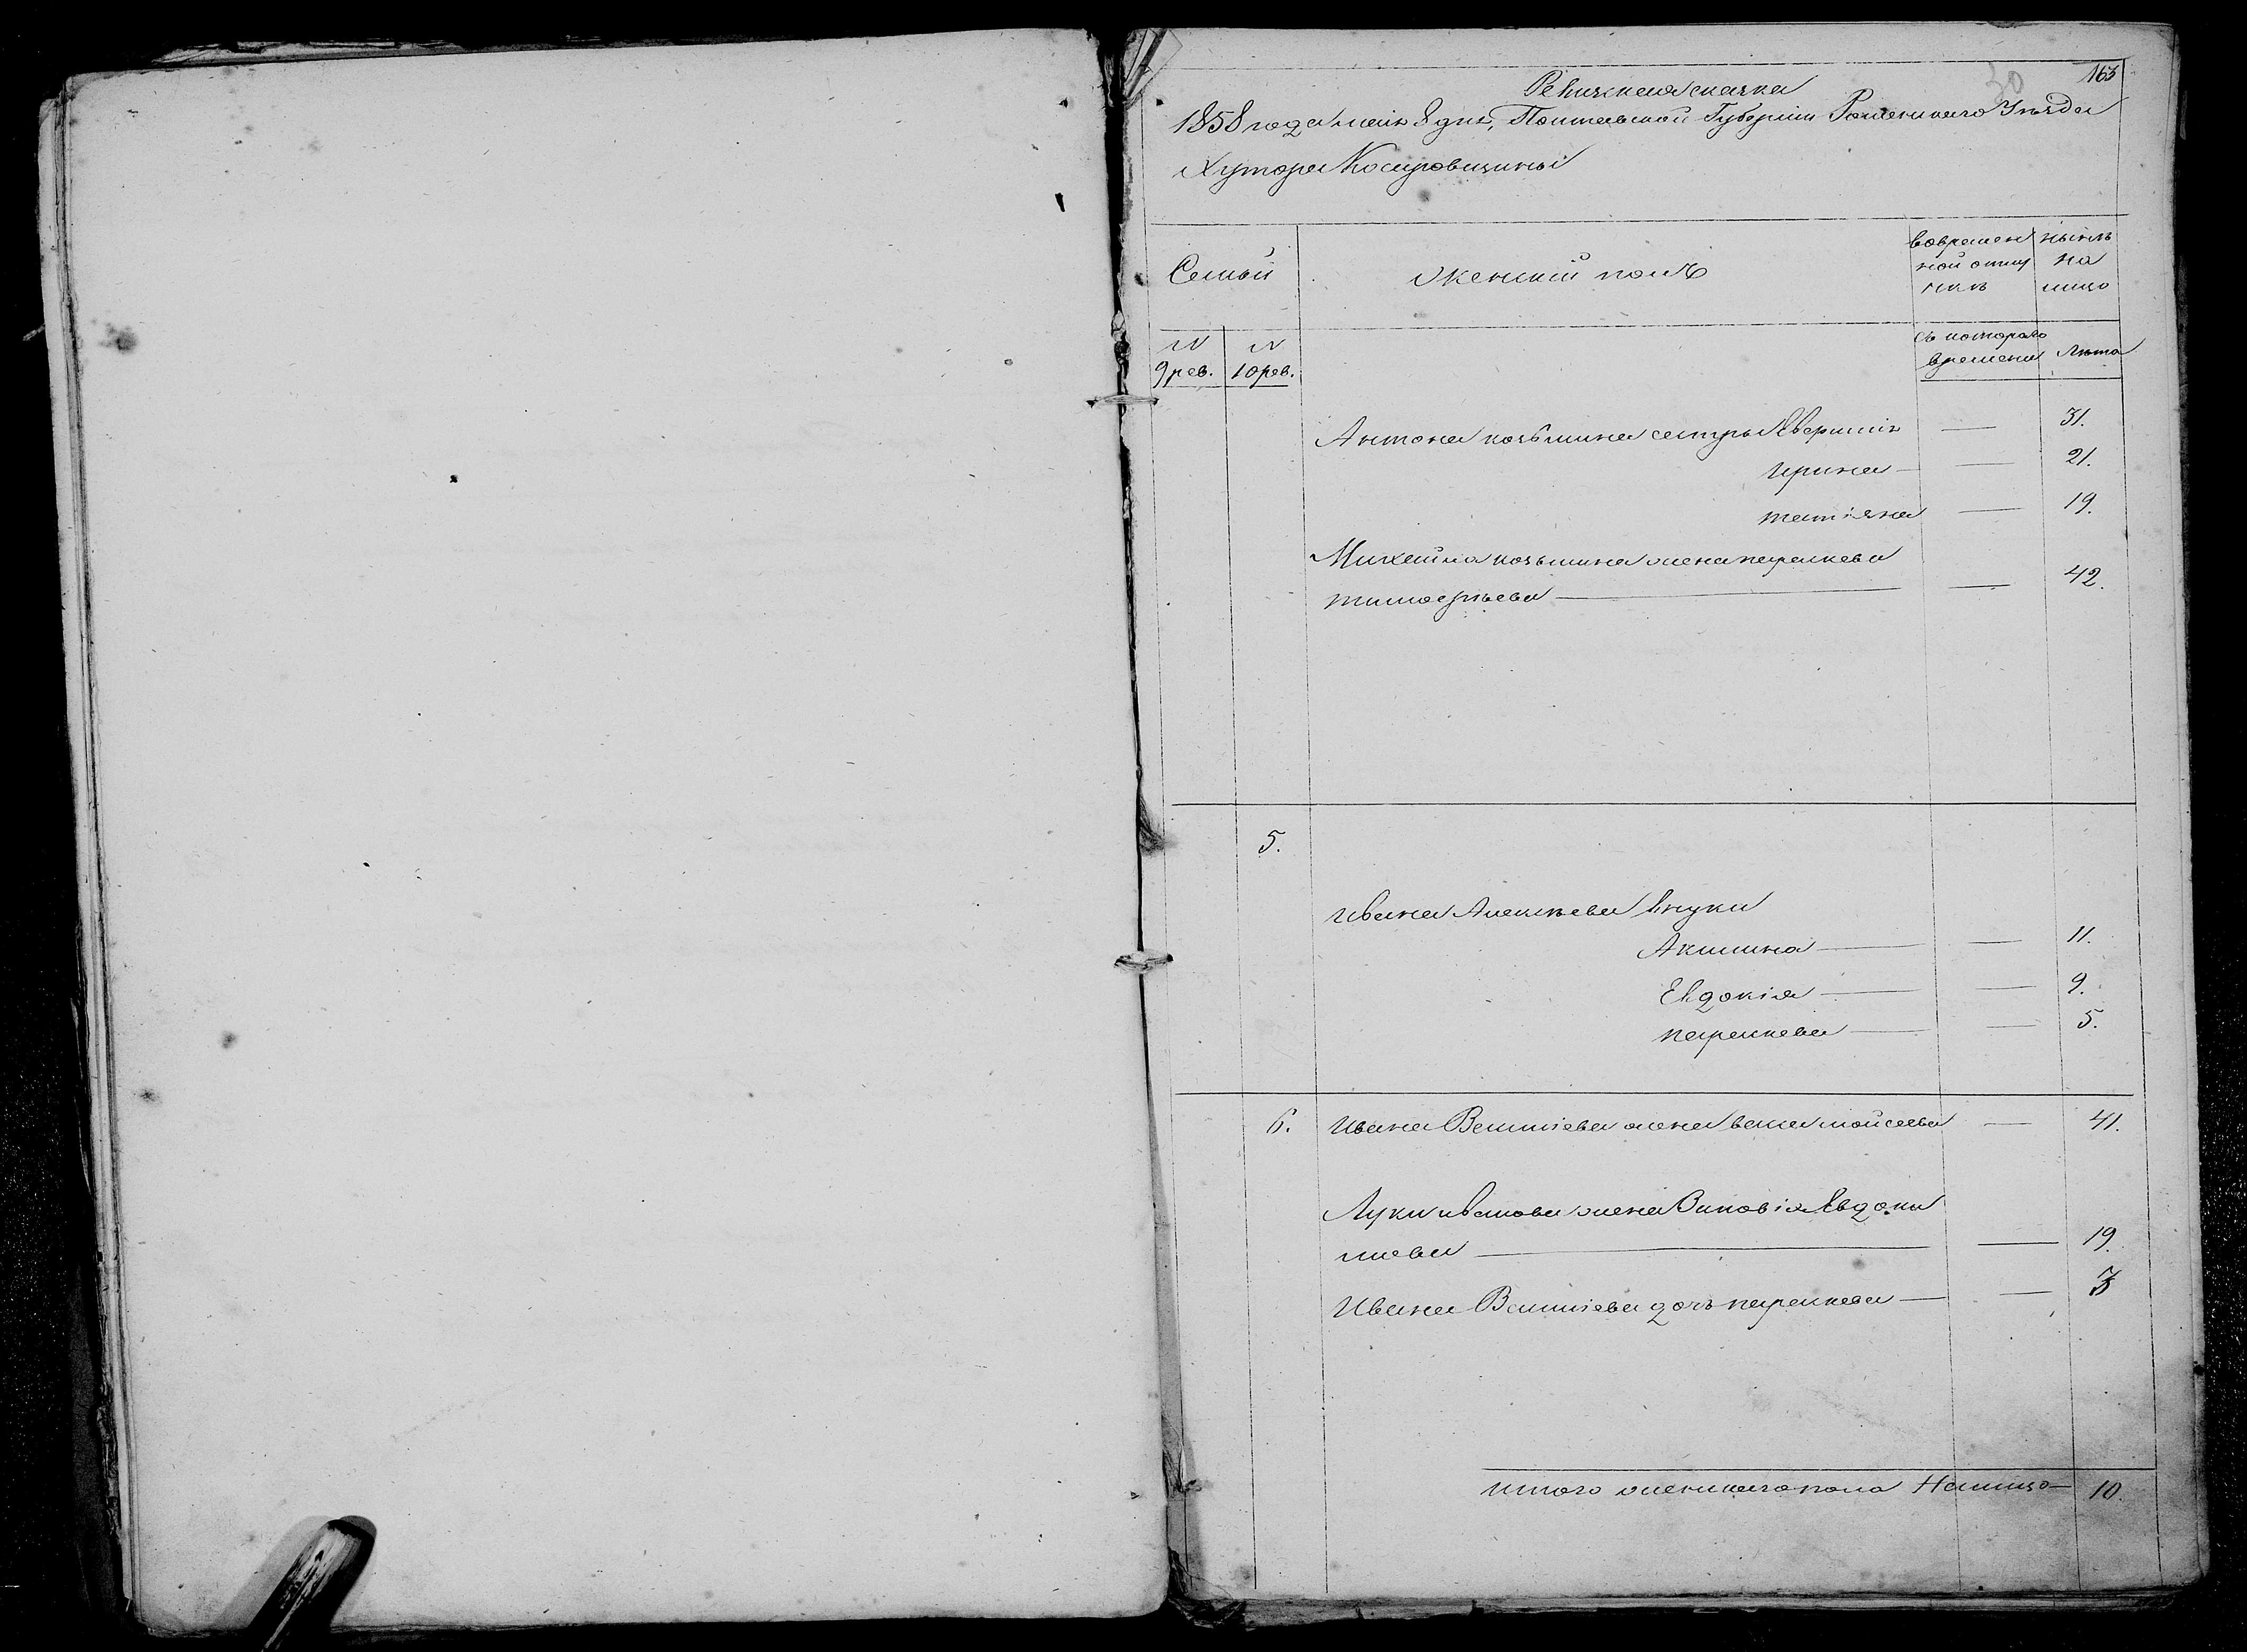 163
30
Ревизская сказка
1858 года маія 8 дня, Полтавской Губерніи Роменскаго Уезда
Хутора
Семьи
Женскій полъ
вовремен
ной отлу
чкѣ
нынѣ
на
лицо
N
9 рев.
N
10 рев.
съ котораго
времени
Лѣта
Антона козьмина сестры 31.
ирина 21.
татіяна 19.
Михайла козьмина жена параскева
тимофѣева 42.
5.
ивана Алексѣева внуки
Акилина 11.
Евдокія 9.
параскева 5.
6. ивана жена мойсеева 41.
Луки иванова жена Зиновія Евдоки
мова 19.
Ивана дочь параскева 3
итого женскаго пола Налицо 10.